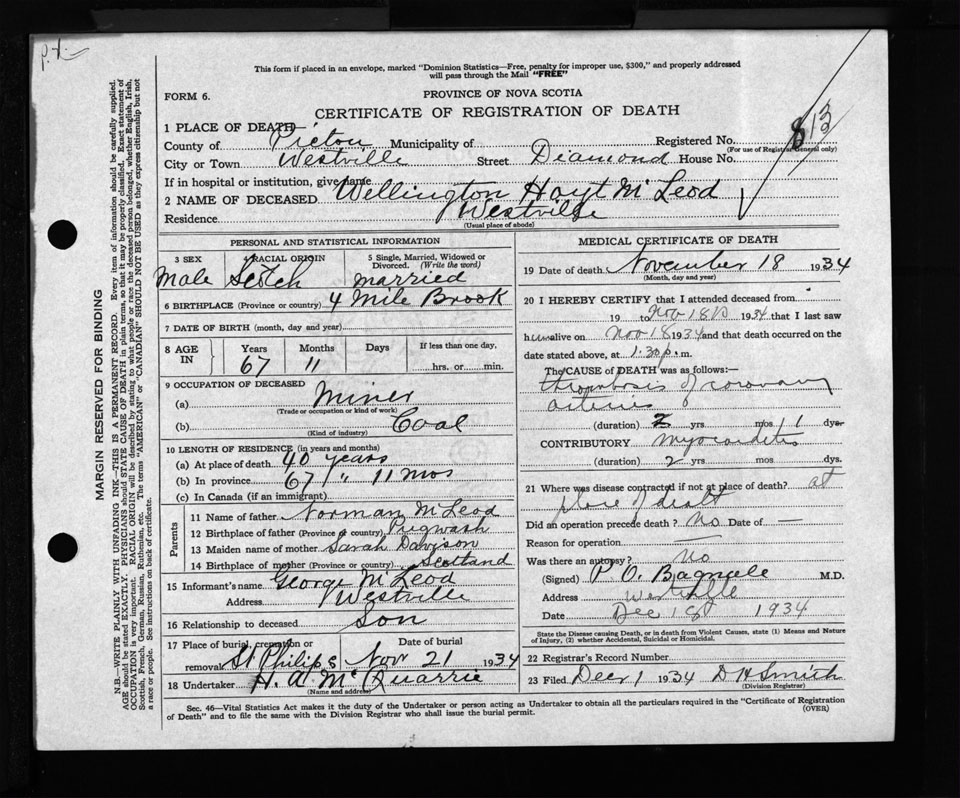 This form if placed in an envelope, marked "Dominion Statistics—Free, penalty for improper use, $300," and properly addressed
will pass through the Mail "FREE"
FORM 6.
PROVINCE OF NOVA SCOTIA
CERTIFICATE OF REGISTRATION OF DEATH
813
1 PLACE OF DEATH—
County of Pictou Municipality of Registered No.
(For use of Registrar General only)
City or Town Westville Street Diamond House No.
If in hospital or institution, give name
2 NAME OF DECEASED Wellington Hoyt McLeod
Residence Westville
(Usual place of abode)
MARGIN RESERVED FOR BINDING
N.B.—WRITE PLAINLY WITH UNFADING INK—THIS IS A PERMANENT RECORD. Every item of information should be carefully supplied.
AGE should be stated EXACTLY. PHYSICIANS should STATE CAUSE OF DEATH in plain terms, so that it may be properly classified. Exact statement of
OCCUPATION is very important. RACIAL ORIGIN will be described by stating to what people or race the deceased person belonged, whether English, Irish,
Scottish, French, German, Russian, Ruthenian, etc. The terms "AMERICAN" or "CANADIAN" SHOULD NOT BE USED as they express citizenship but not
a race or people. See instructions on back of certificate.
PERSONAL AND STATISTICAL INFORMATION
3 SEX
Male
4 RACIAL ORIGIN
Scotch
5 Single, Married, Widowed or
Divorced. (Write the word)
married
6 BIRTHPLACE (Province or country) 4 Mile Brook
7 DATE OF BIRTH (month, day and year)
8 AGE IN
Years Months Days If less than one day,
67 11 hrs. or min.
9 OCCUPATION OF DECEASED
(a) Miner
(Trade or occupation or kind of work)
(b) Coal
(Kind of industry)
10 LENGTH OF RESIDENCE (in years and months)
(a) At place of death 40 years
(b) In province 67 " 11 mos
(c) In Canada (if an immigrant)
Parents
11 Name of father Norman McLeod
12 Birthplace of father (Province or country) Pugwash
13 Maiden name of mother Sarah Davison
14 Birthplace of mother (Province or country) Scotland
15 Informant's name George McLeod
Address Westville
16 Relationship to deceased Son
17 Place of burial, cremation or Date of burial
removal St Philips Nov 21 1934
18 Undertaker H. A. McQuarrie
(Name and address)
MEDICAL CERTIFICATE OF DEATH
19 Date of death November 18 1934
(Month, day and year)
20 I HEREBY CERTIFY that I attended deceased from
19 to Nov 18 1934 that I last saw
him alive on Nov 18 1934 and that death occurred on the
date stated above, at 1.30 p.m.
The CAUSE of DEATH was as follows:—
thrombosis of coronary
arteries
(duration) yrs mos 11 dys
CONTRIBUTORY myocarditis
(duration) 2 yrs mos dys.
21 Where was disease contracted if not at place of death? at
place of death
Did an operation precede death? No Date of —
Reason for operation —
Was there an autopsy? No
(Signed) P. O. M.D.
Address Westville
Date Dec 1st 1934
State the Disease causing Death, or in death from Violent Causes, state (1) Means and Nature
of Injury, (2) whether Accidental, Suicidal or Homicidal.
22 Registrar's Record Number
23 Filed Dec 1 1934 D H Smith
(Division Registrar)
Sec. 46—Vital Statistics Act makes it the duty of the Undertaker or person acting as Undertaker to obtain all the particulars required in the "Certificate of Registration
of Death" and to file the same with the Division Registrar who shall issue the burial permit.
(OVER)